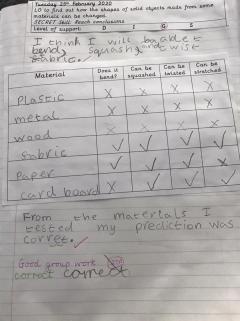 Tuesday 25th February 2020
LO to find out how the shapes of solid objects made from some
materials can be changed.
SECRET Skill: Reach conclusions
Level of support: D G S
I think I will be able t
bend, squash, and twist
fabric.
Material Does it bend? Can be squashed Can be twisted Can be stretched
Plastic X X X X
metal X X X X
wood X X X X
fabric ✓ ✓ ✓ ✓
Paper ✓ ✓ ✓ X
card board X ✓ ✓ ✓
From the materials I
tested my prediction was
corret.
Good group work
correct correct